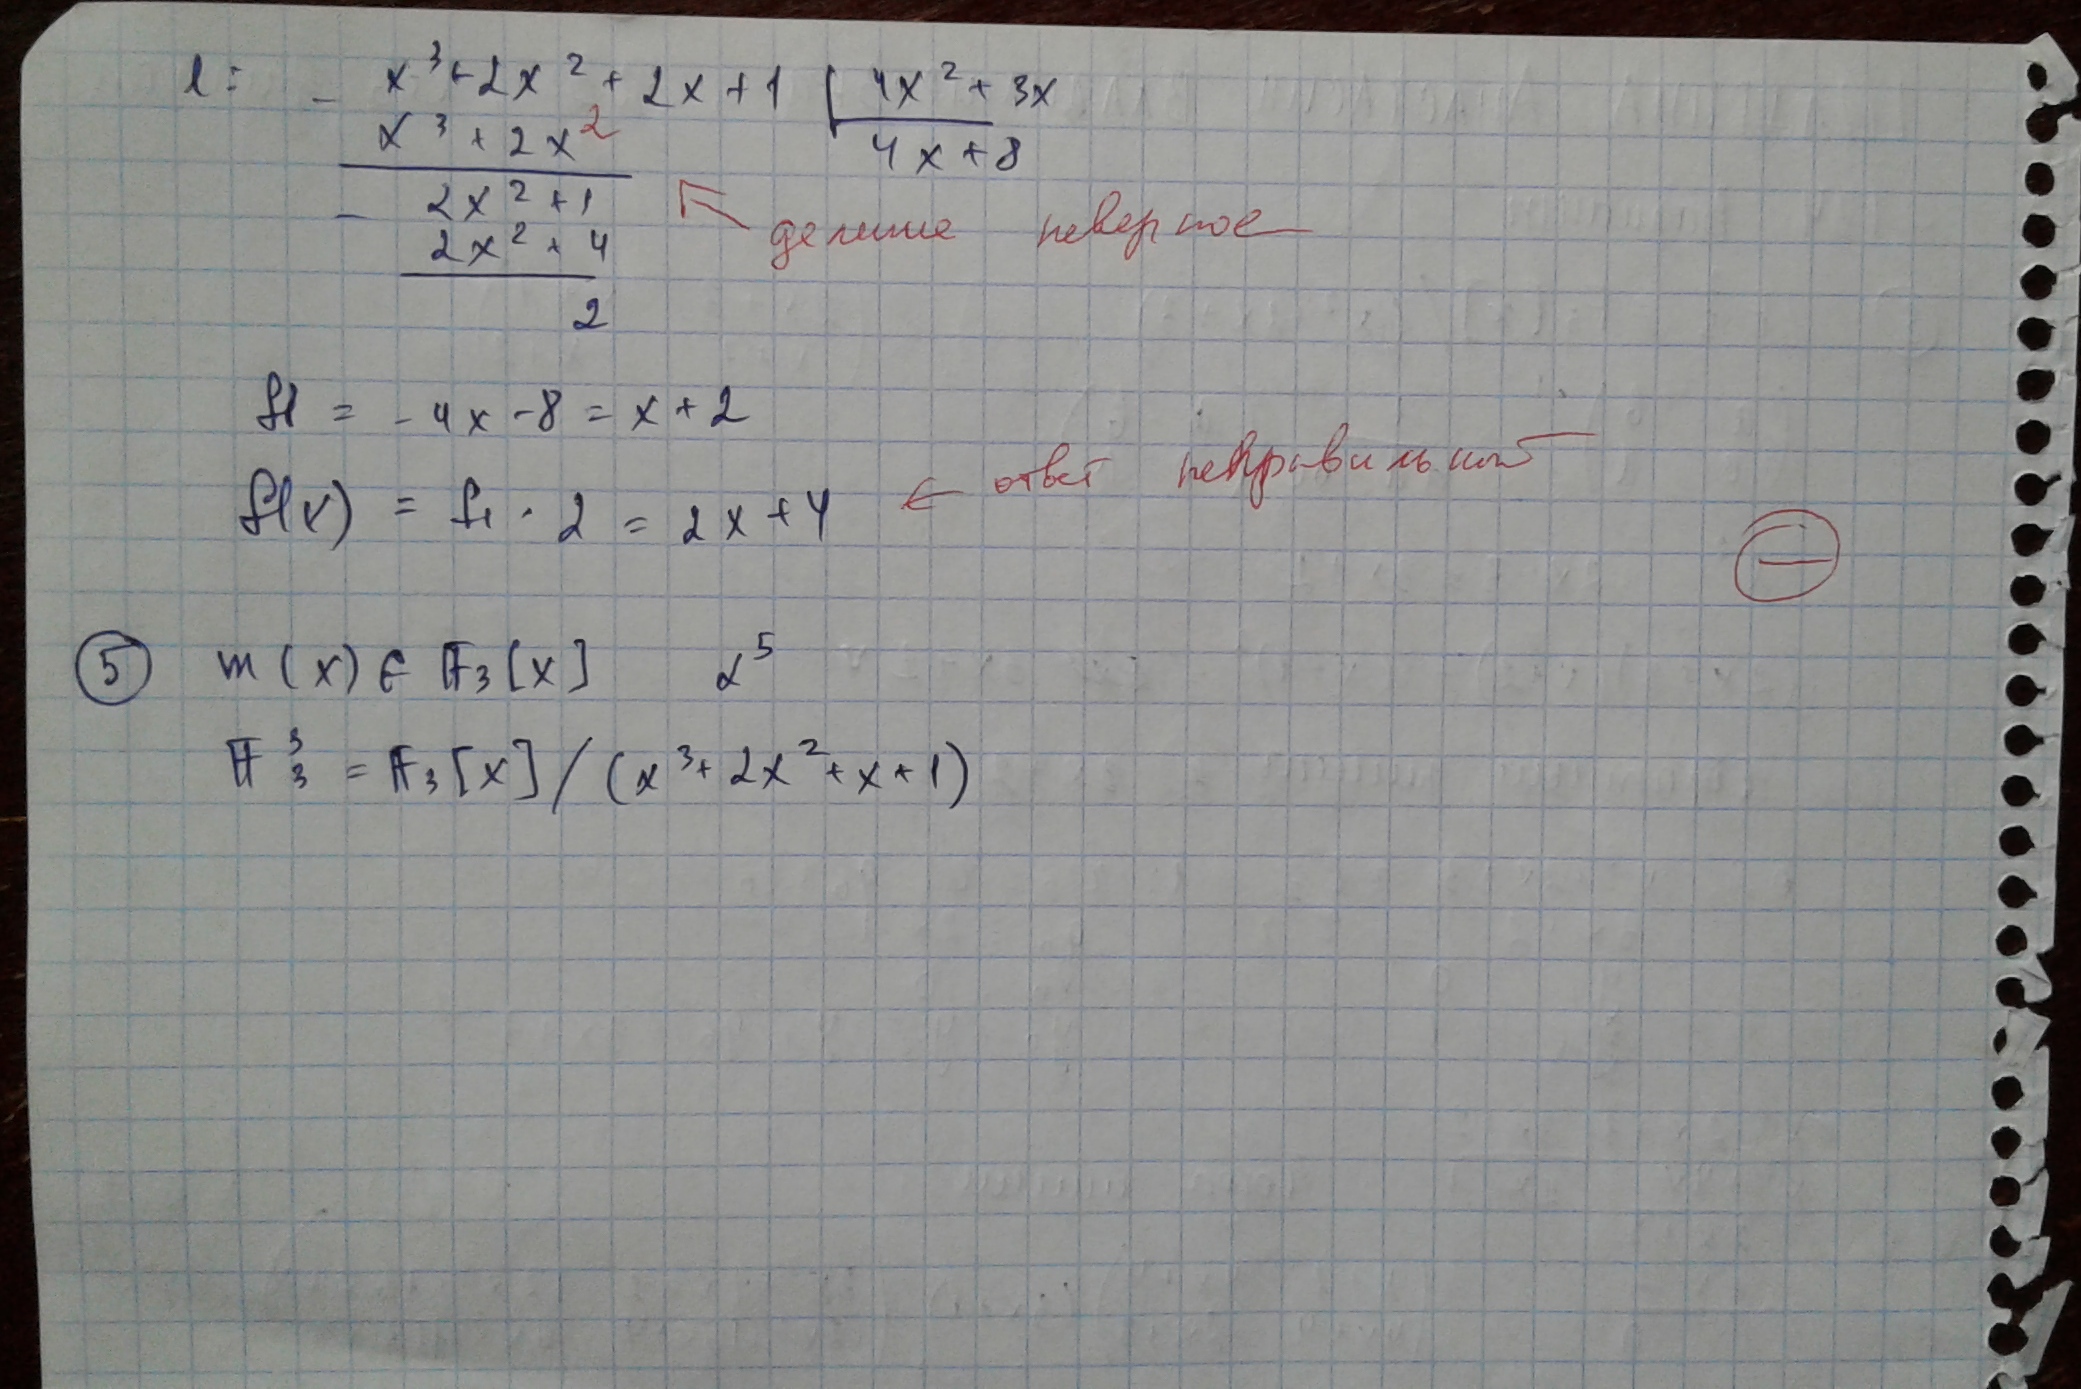 l: - x³+2x²+2x+1 | 4x²+3x
x³+2x² 4x+8
- 2x²+1
← деление неверное
2x²+4
2
f1 = -4x-8 = x+2
f1(x) = f1 · 2 = 2x+4 ← ответ неправильный
−
5 m(x) ∈ F₃[x] α⁵
F₃³ = F₃[x]/(x³+2x²+x+1)